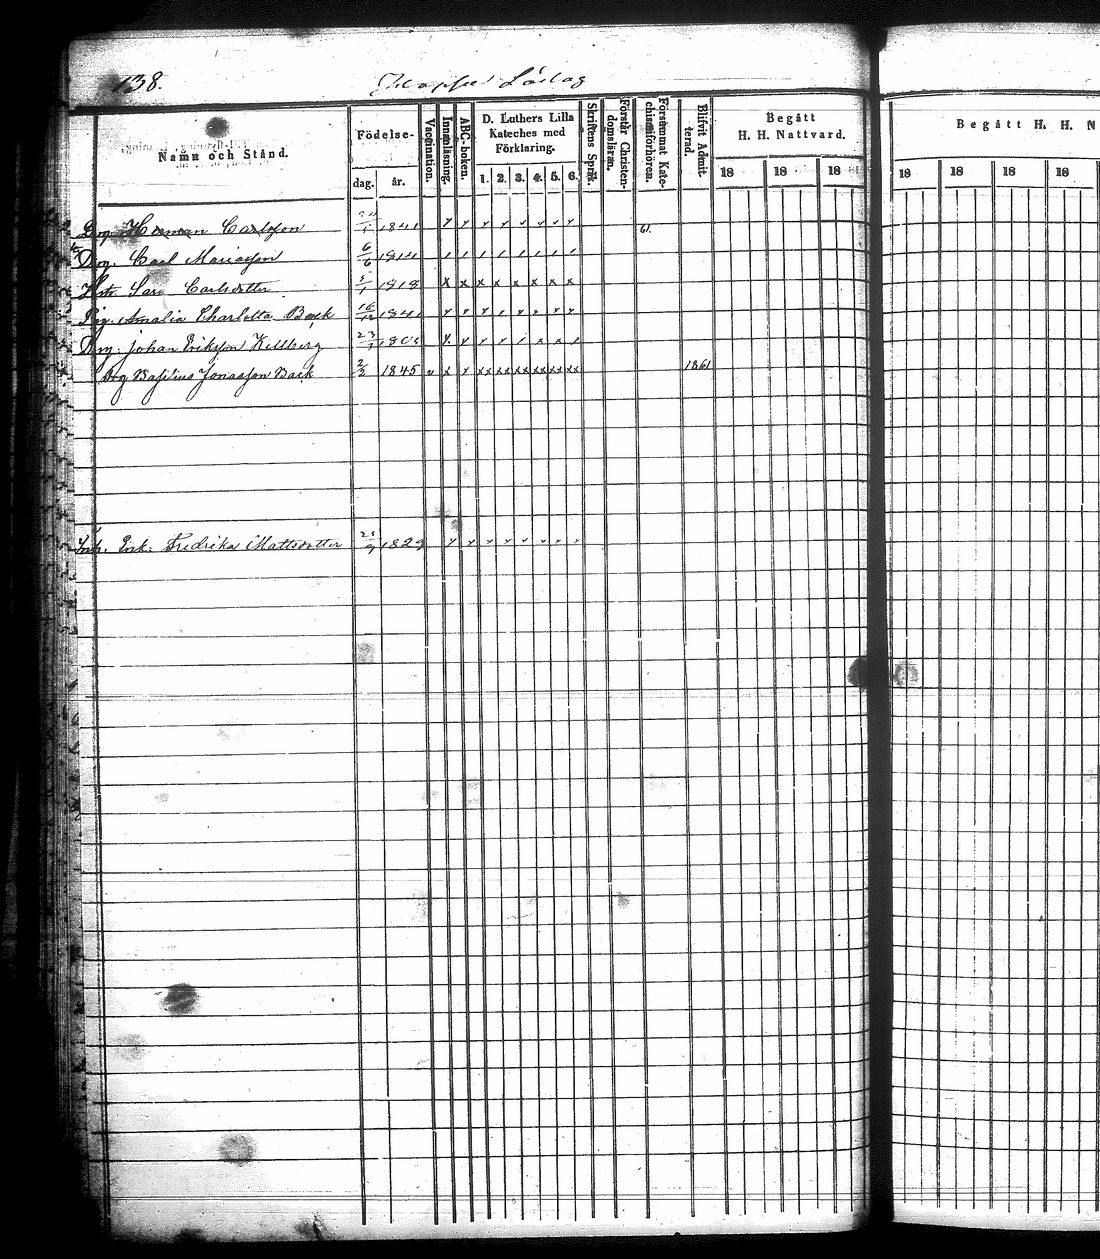 138.
Namn och Stånd.
Födelse-
dag. år.
Vaccination.
Innanläsning.
ABC-boken.
D. Luthers Lilla
Kateches med
Förklaring.
1. 2. 3. 4. 5. 6.
Skriftens Språk.
Förstår Christen-
domsläran.
Försummat Kate-
chismiförhören.
Blifvit Admit-
terad.
Begått
H. H. Nattvard.
18 18 18
Begått H. H. N
18 18 18 18
Drg. Herman Carlsson 1841 61.
Drg. Carl Mariasson 6/6 1814
Sara Carlsdotter 5/1 1818
Pig. Amalia Charlotta Back 1841
Drg. Johan Eriksson Kellberg 23
Drg Basilius Jonasson Back 2/3 1845 1861
Enk. Fredrika Mattsdotter 1829